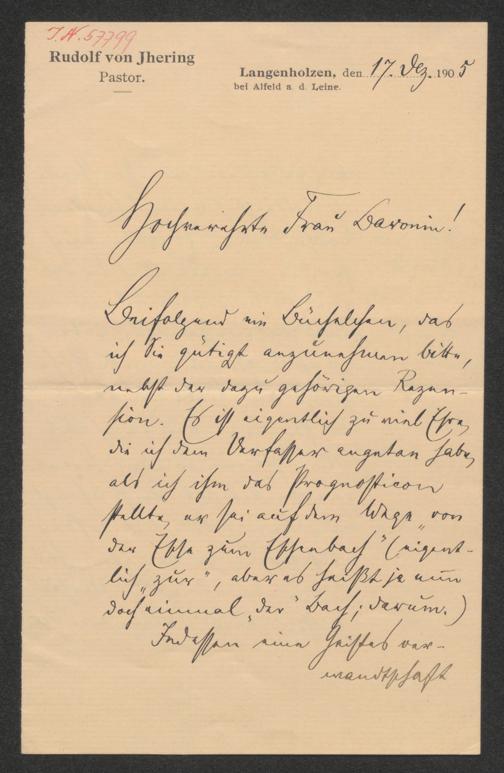 J. N. 57799
Rudolf von Jhering
Pastor.
Langenholzen, den 17. Dez. 1905
bei Alfeld a. d. Leine.
Hochverehrte Frau Baronin!
Beifolgend ein Büchelchen, das
ich Sie gütigst anzunehmen bitte,
nebst der dazu gehörigen Rezen-
sion. Es ist eigentlich zu viel Ehre,
die ich dem Verfasser angetan habe,
als ich ihm das Prognosticon
stellte, er sei auf dem Wege „von
der zum Eschenbach" (eigent-
lich „zur", aber es heißt ja nun
doch einmal „der" Bach; darum.)
Indessen eine Geistesver-
wandtschaft